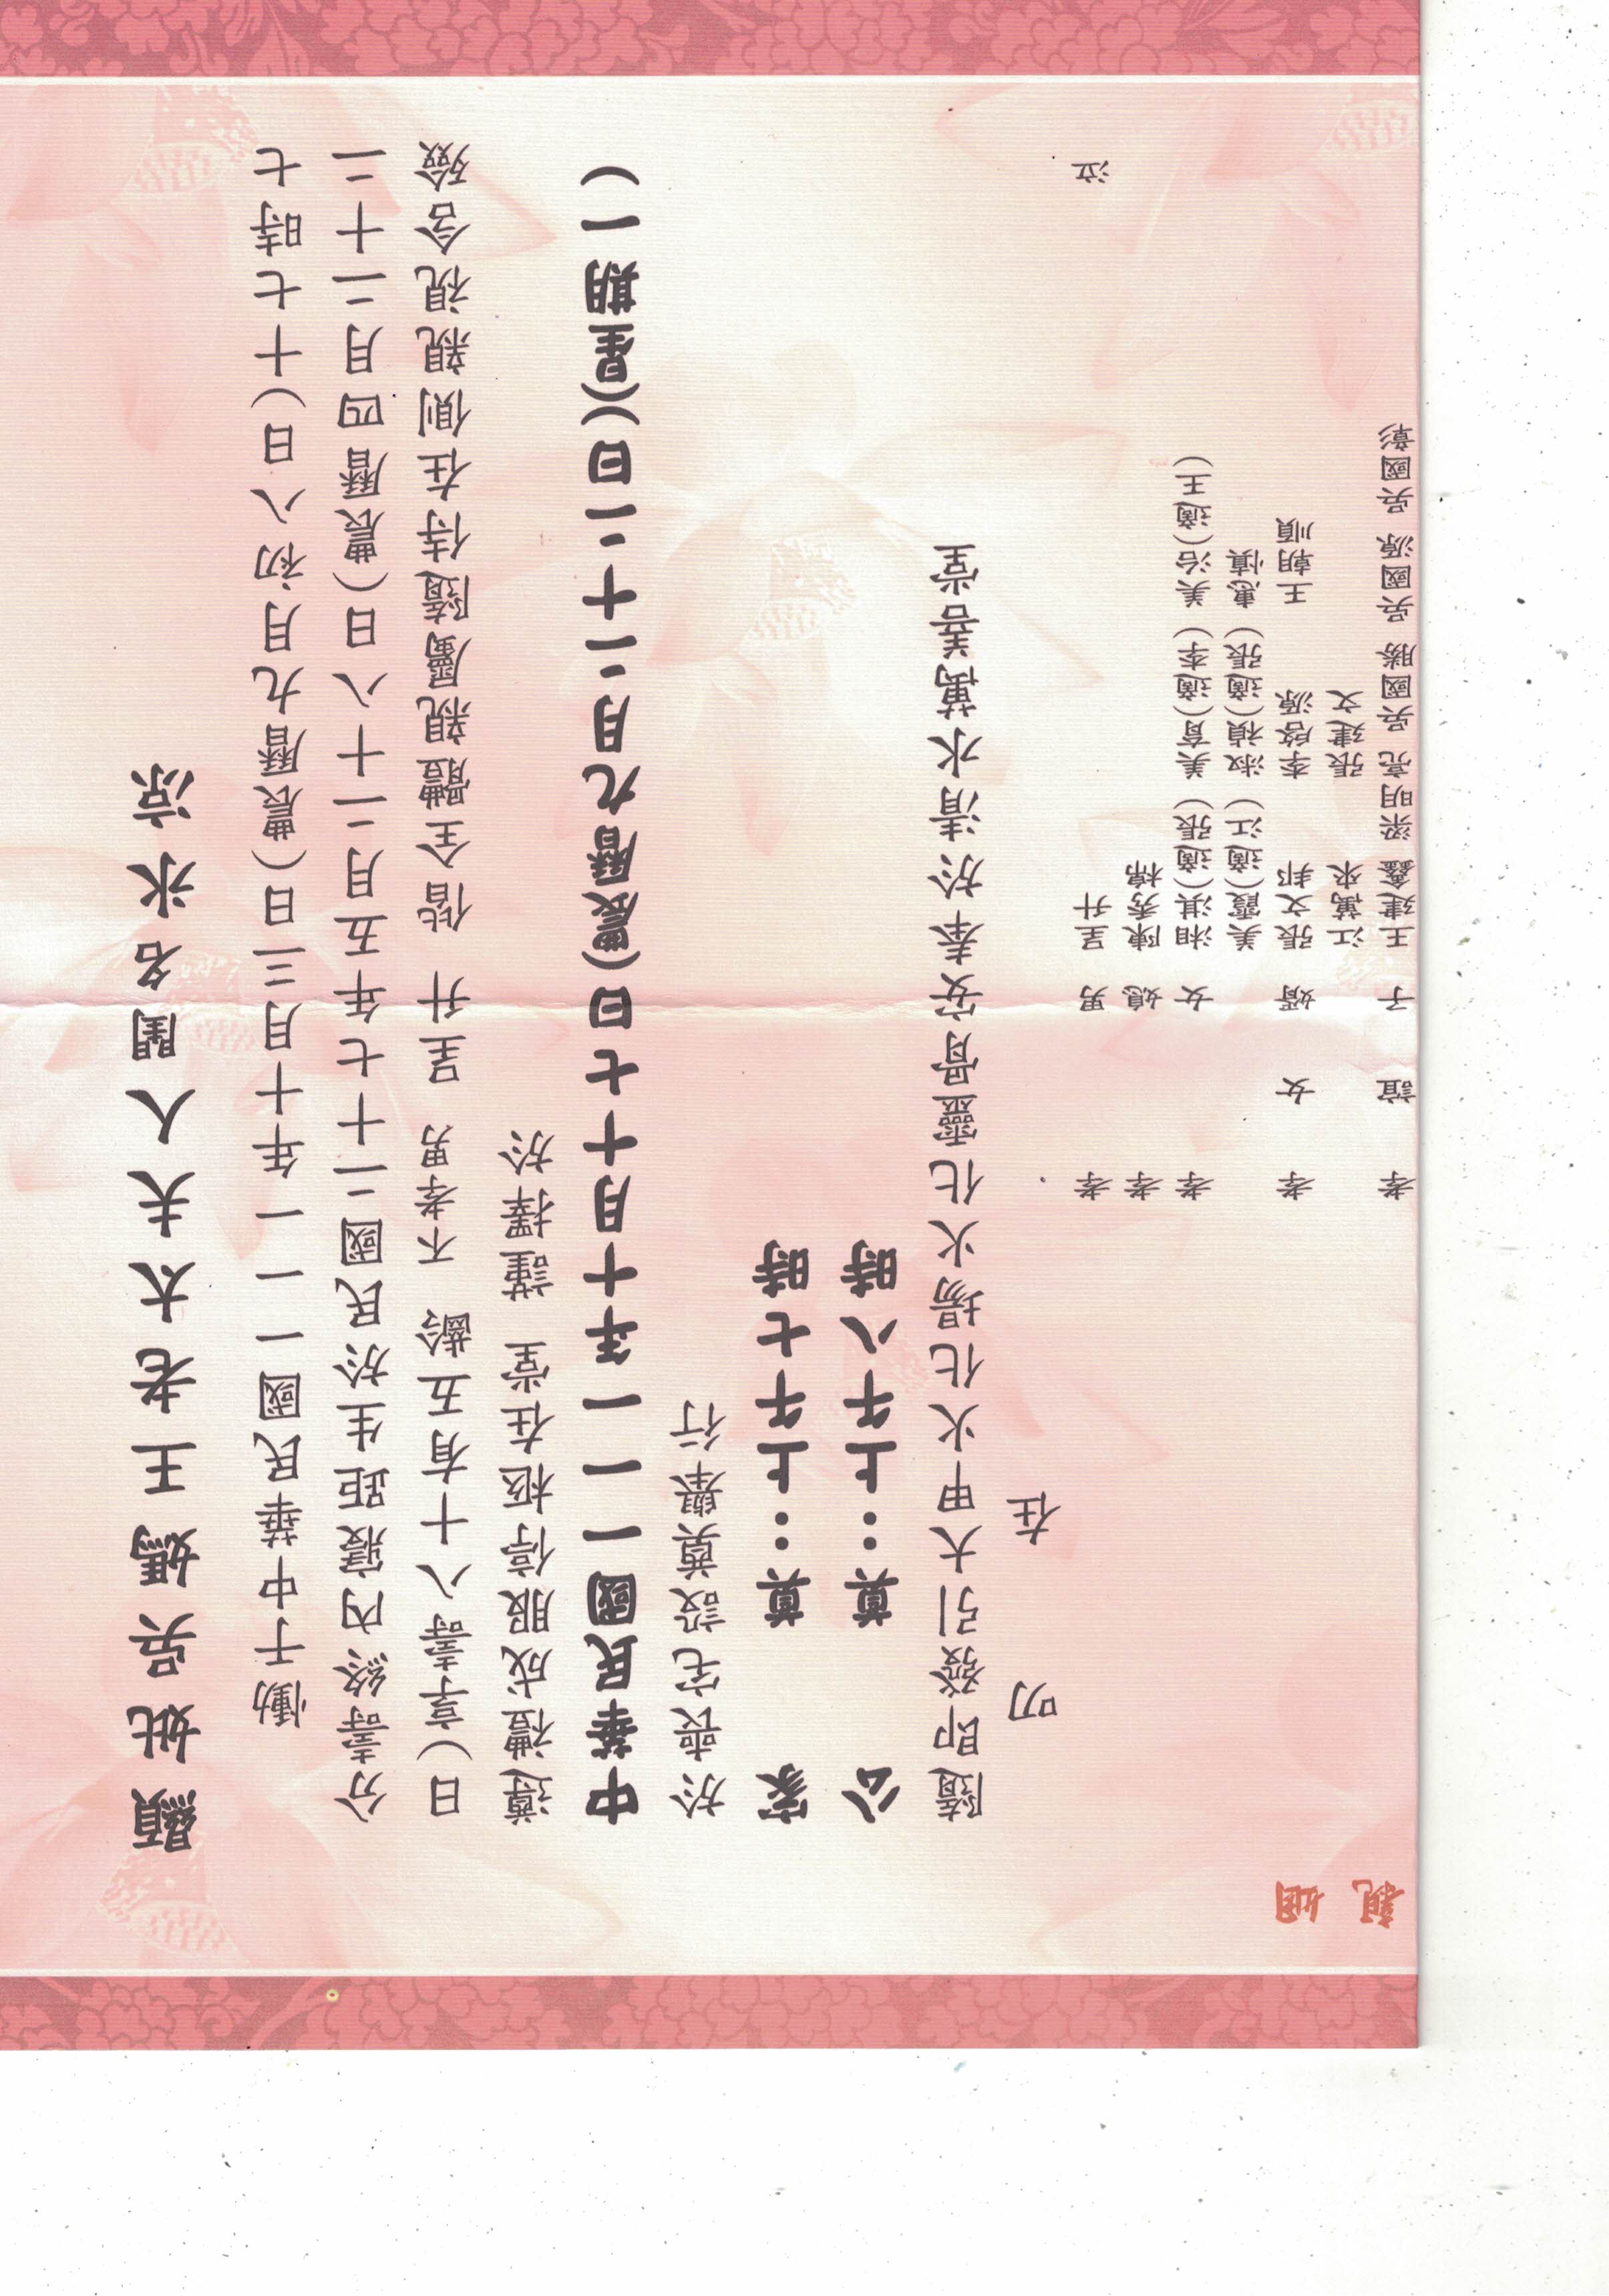 顯妣吳媽王老太夫人閨名氷涼
慟于中華民國一一一年十月三日(農曆九月初八日)十七時七
分壽終內寢距生於民國二十七年五月二十八日(農曆四月二十二
日)享壽八十有五齡 不孝男 呈升 偕全體親屬隨侍在側親視含殮
遵禮成服停柩在堂 謹擇於
中華民國一一一年十月十七日(農曆九月二十二日)(星期一)
於喪宅設奠舉行
家 奠：上午七時
公 奠：上午八時
隨即發引大甲火化場火化靈骨安奉於清水萬善堂
叨 在
孝 男 呈升 泣
孝 媳 陳秀棉
孝 女 湘淇(適張) 美育(適李) 美治(適王)
美霞(適江) 淑禎(適張) 惠慎
孝 女 婿 張文邦 李啓源 王朝順
江萬來 張建文
孝 誼 子 王建鑫 梁明亮 吳國勝 吳國源 吳國彰
姻
親